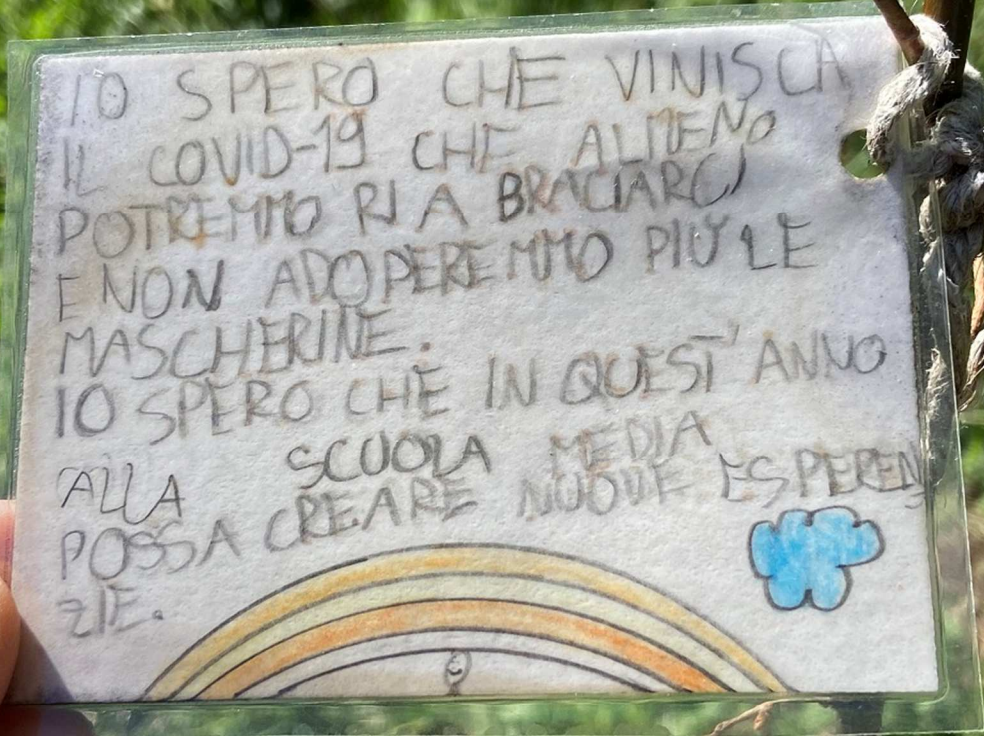 IO SPERO CHE VINISCA
IL COVID-19 CHE ALMENO
POTREMMO RIA BRACIARCI
E NON ADOPEREMMO PIÙ LE
MASCHERINE.
IO SPERO CHE IN QUEST'ANNO
ALLA SCUOLA MEDIA
POSSA CREARE NUOVE ESPEREN
ZIE.